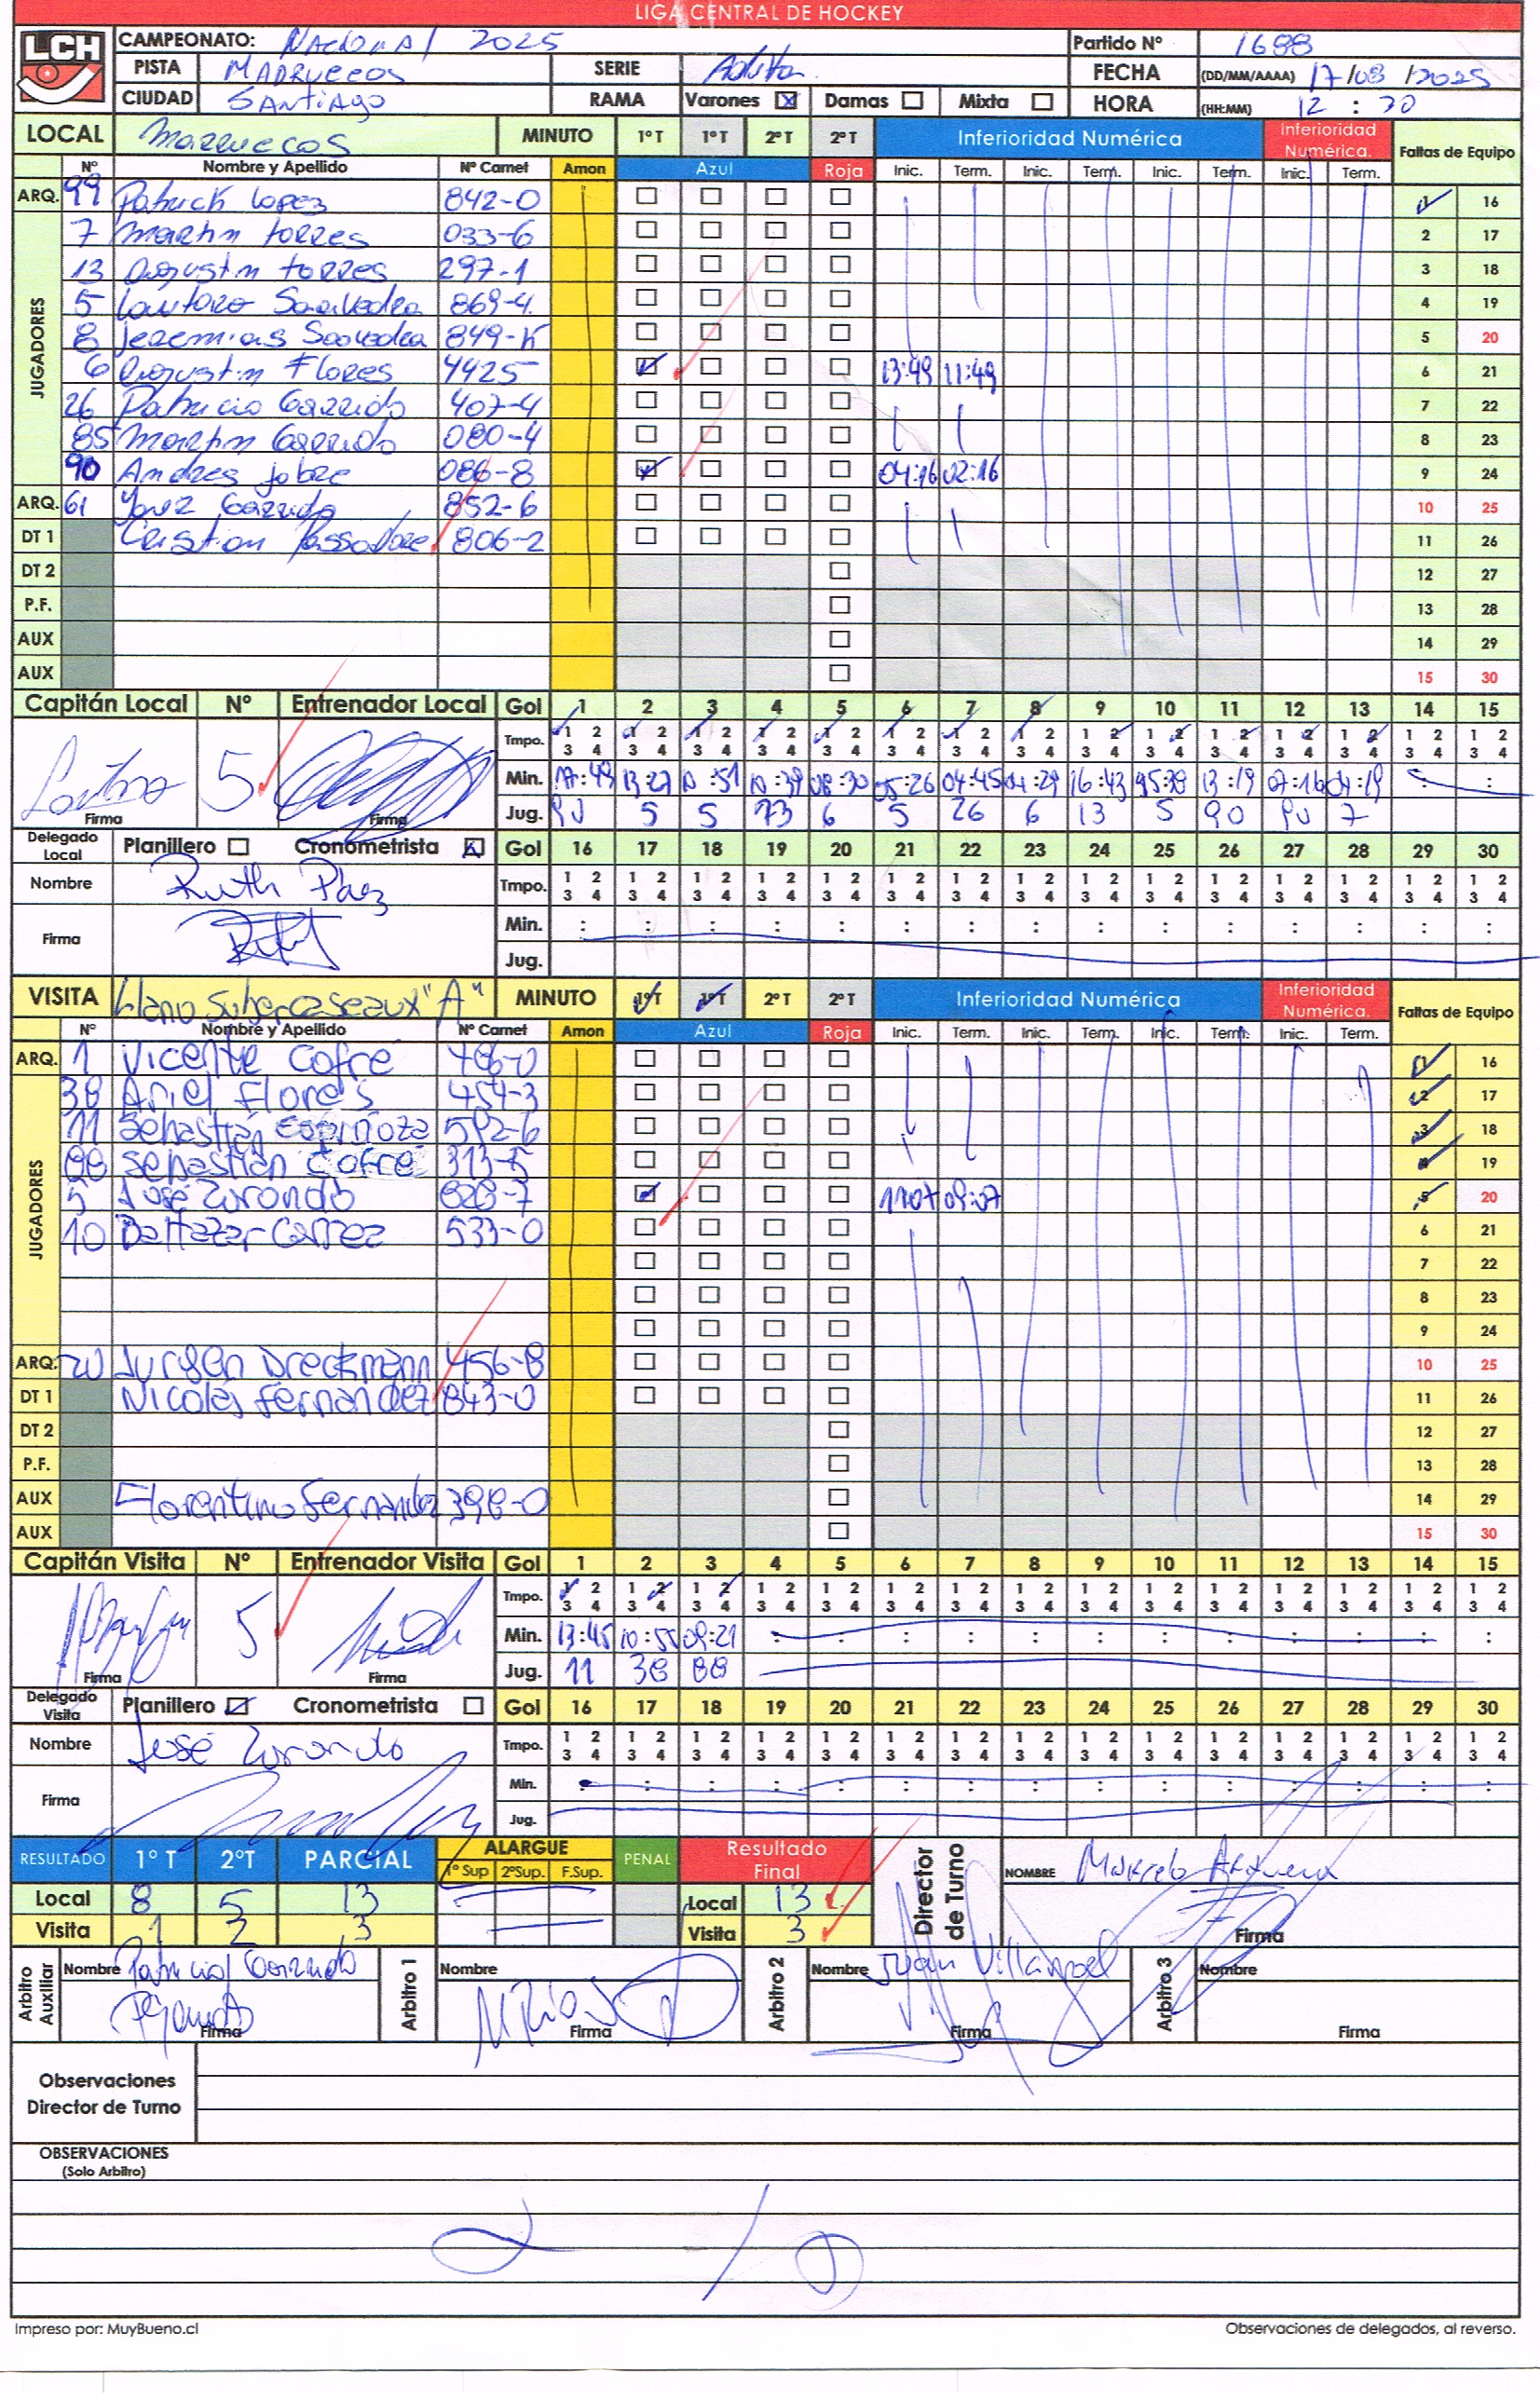 LIGA CENTRAL DE HOCKEY
LCH
CAMPEONATO: Nacional 2025 Partido Nº 1688
PISTA Marruecos SERIE Adulta FECHA (DD/MM/AAAA) 17/08/2025
CIUDAD Santiago RAMA Varones Damas Mixta HORA (HH:MM) 12:
LOCAL Marruecos MINUTO 1º T 1º T 2º T 2º T Inferioridad Numérica Inferioridad Numérica. Faltas de Equipo
Nº Nombre y Apellido Nº Carnet Amon Azul Roja Inic. Term. Inic. Term. Inic. Term. Inic. Term.
ARQ. 99 Patrick Lopez 842-0 1 16
JUGADORES
7 Martin Torres 033-6 2 17
13 Agustin Torres 297-1 3 18
5 Lautaro Saavedra 869-4 4 19
8 Jeremias Saavedra 849-K 5 20
6 Agustin Flores 4425 13:49 11:49 6 21
26 Patricio Garrido 407-4 7 22
85 Martin Garrido 080-4 8 23
90 Andres Jobre 086-8 04:16 02:16 9 24
ARQ. 61 Garrido 852-6 10 25
DT 1 Cristian 806-2 11 26
DT 2 12 27
P.F. 13 28
AUX 14 29
AUX 15 30
Capitán Local Nº Entrenador Local Gol 1 2 3 4 5 6 7 8 9 10 11 12 13 14 15
Tmpo. 1 2 3 4 1 2 3 4 1 2 3 4 1 2 3 4 1 2 3 4 1 2 3 4 1 2 3 4 1 2 3 4 1 2 3 4 1 2 3 4 1 2 3 4 1 2 3 4 1 2 3 4 1 2 3 4 1 2 3 4
5 Min. 17:49 13:27 10:51 10:39 08:30 05:26 04:45 04:29 16:43 13:19 07:16 04:19 : :
Firma Firma Jug. 5 5 73 6 5 26 6 13 5 90 PU 7
Delegado Local Planillero Cronometrista Gol 16 17 18 19 20 21 22 23 24 25 26 27 28 29 30
Nombre Ruth Páez Tmpo. 1 2 3 4 1 2 3 4 1 2 3 4 1 2 3 4 1 2 3 4 1 2 3 4 1 2 3 4 1 2 3 4 1 2 3 4 1 2 3 4 1 2 3 4 1 2 3 4 1 2 3 4 1 2 3 4 1 2 3 4
Firma Min. : : : : : : : : : : : : : : :
Jug.
VISITA Llano Subercaseaux "A" MINUTO 1º T 1º T 2º T 2º T Inferioridad Numérica Inferioridad Numérica. Faltas de Equipo
Nº Nombre y Apellido Nº Carnet Amon Azul Roja Inic. Term. Inic. Term. Inic. Term. Inic. Term.
ARQ. 1 Vicente Cofré 466-0 1 16
JUGADORES
38 Ariel Flores 454-3 2 17
11 Sebastián Espinoza 592-6 3 18
88 Sebastián Cofré 313-5 4 19
5 José Zorondo 828-7 11:07 09:07 5 20
10 Baltazar Carrez 533-0 6 21
7 22
8 23
9 24
ARQ. 20 Jurgen Dreckmann 456-8 10 25
DT 1 Nicolás Fernandez 843-0 11 26
DT 2 12 27
P.F. 13 28
AUX Florentino Fernandez 398-0 14 29
AUX 15 30
Capitán Visita Nº Entrenador Visita Gol 1 2 3 4 5 6 7 8 9 10 11 12 13 14 15
Tmpo. 1 2 3 4 1 2 3 4 1 2 3 4 1 2 3 4 1 2 3 4 1 2 3 4 1 2 3 4 1 2 3 4 1 2 3 4 1 2 3 4 1 2 3 4 1 2 3 4 1 2 3 4 1 2 3 4 1 2 3 4
5 Min. 13:45 10:55 09:21 : : : : : : : : : : : :
Firma Firma Jug. 11 38 88
Delegado Visita Planillero Cronometrista Gol 16 17 18 19 20 21 22 23 24 25 26 27 28 29 30
Nombre José Zorondo Tmpo. 1 2 3 4 1 2 3 4 1 2 3 4 1 2 3 4 1 2 3 4 1 2 3 4 1 2 3 4 1 2 3 4 1 2 3 4 1 2 3 4 1 2 3 4 1 2 3 4 1 2 3 4 1 2 3 4 1 2 3 4
Firma Min. : : : : : : : : : : : : : : :
Jug.
RESULTADO 1º T 2ºT PARCIAL ALARGUE 1º Sup 2ºSup. F.Sup. PENAL Resultado Final Director de Turno NOMBRE Marcelo
Local 8 5 13 Local 13
Visita 1 2 3 Visita 3 Firma
Arbitro Auxiliar Nombre Patricio Garrido Firma Arbitro 1 Nombre Firma Arbitro 2 Nombre Juan Villarroel Firma Arbitro 3 Nombre Firma
Observaciones
Director de Turno
OBSERVACIONES
(Solo Arbitro)
Impreso por: MuyBueno.cl Observaciones de delegados, al reverso.